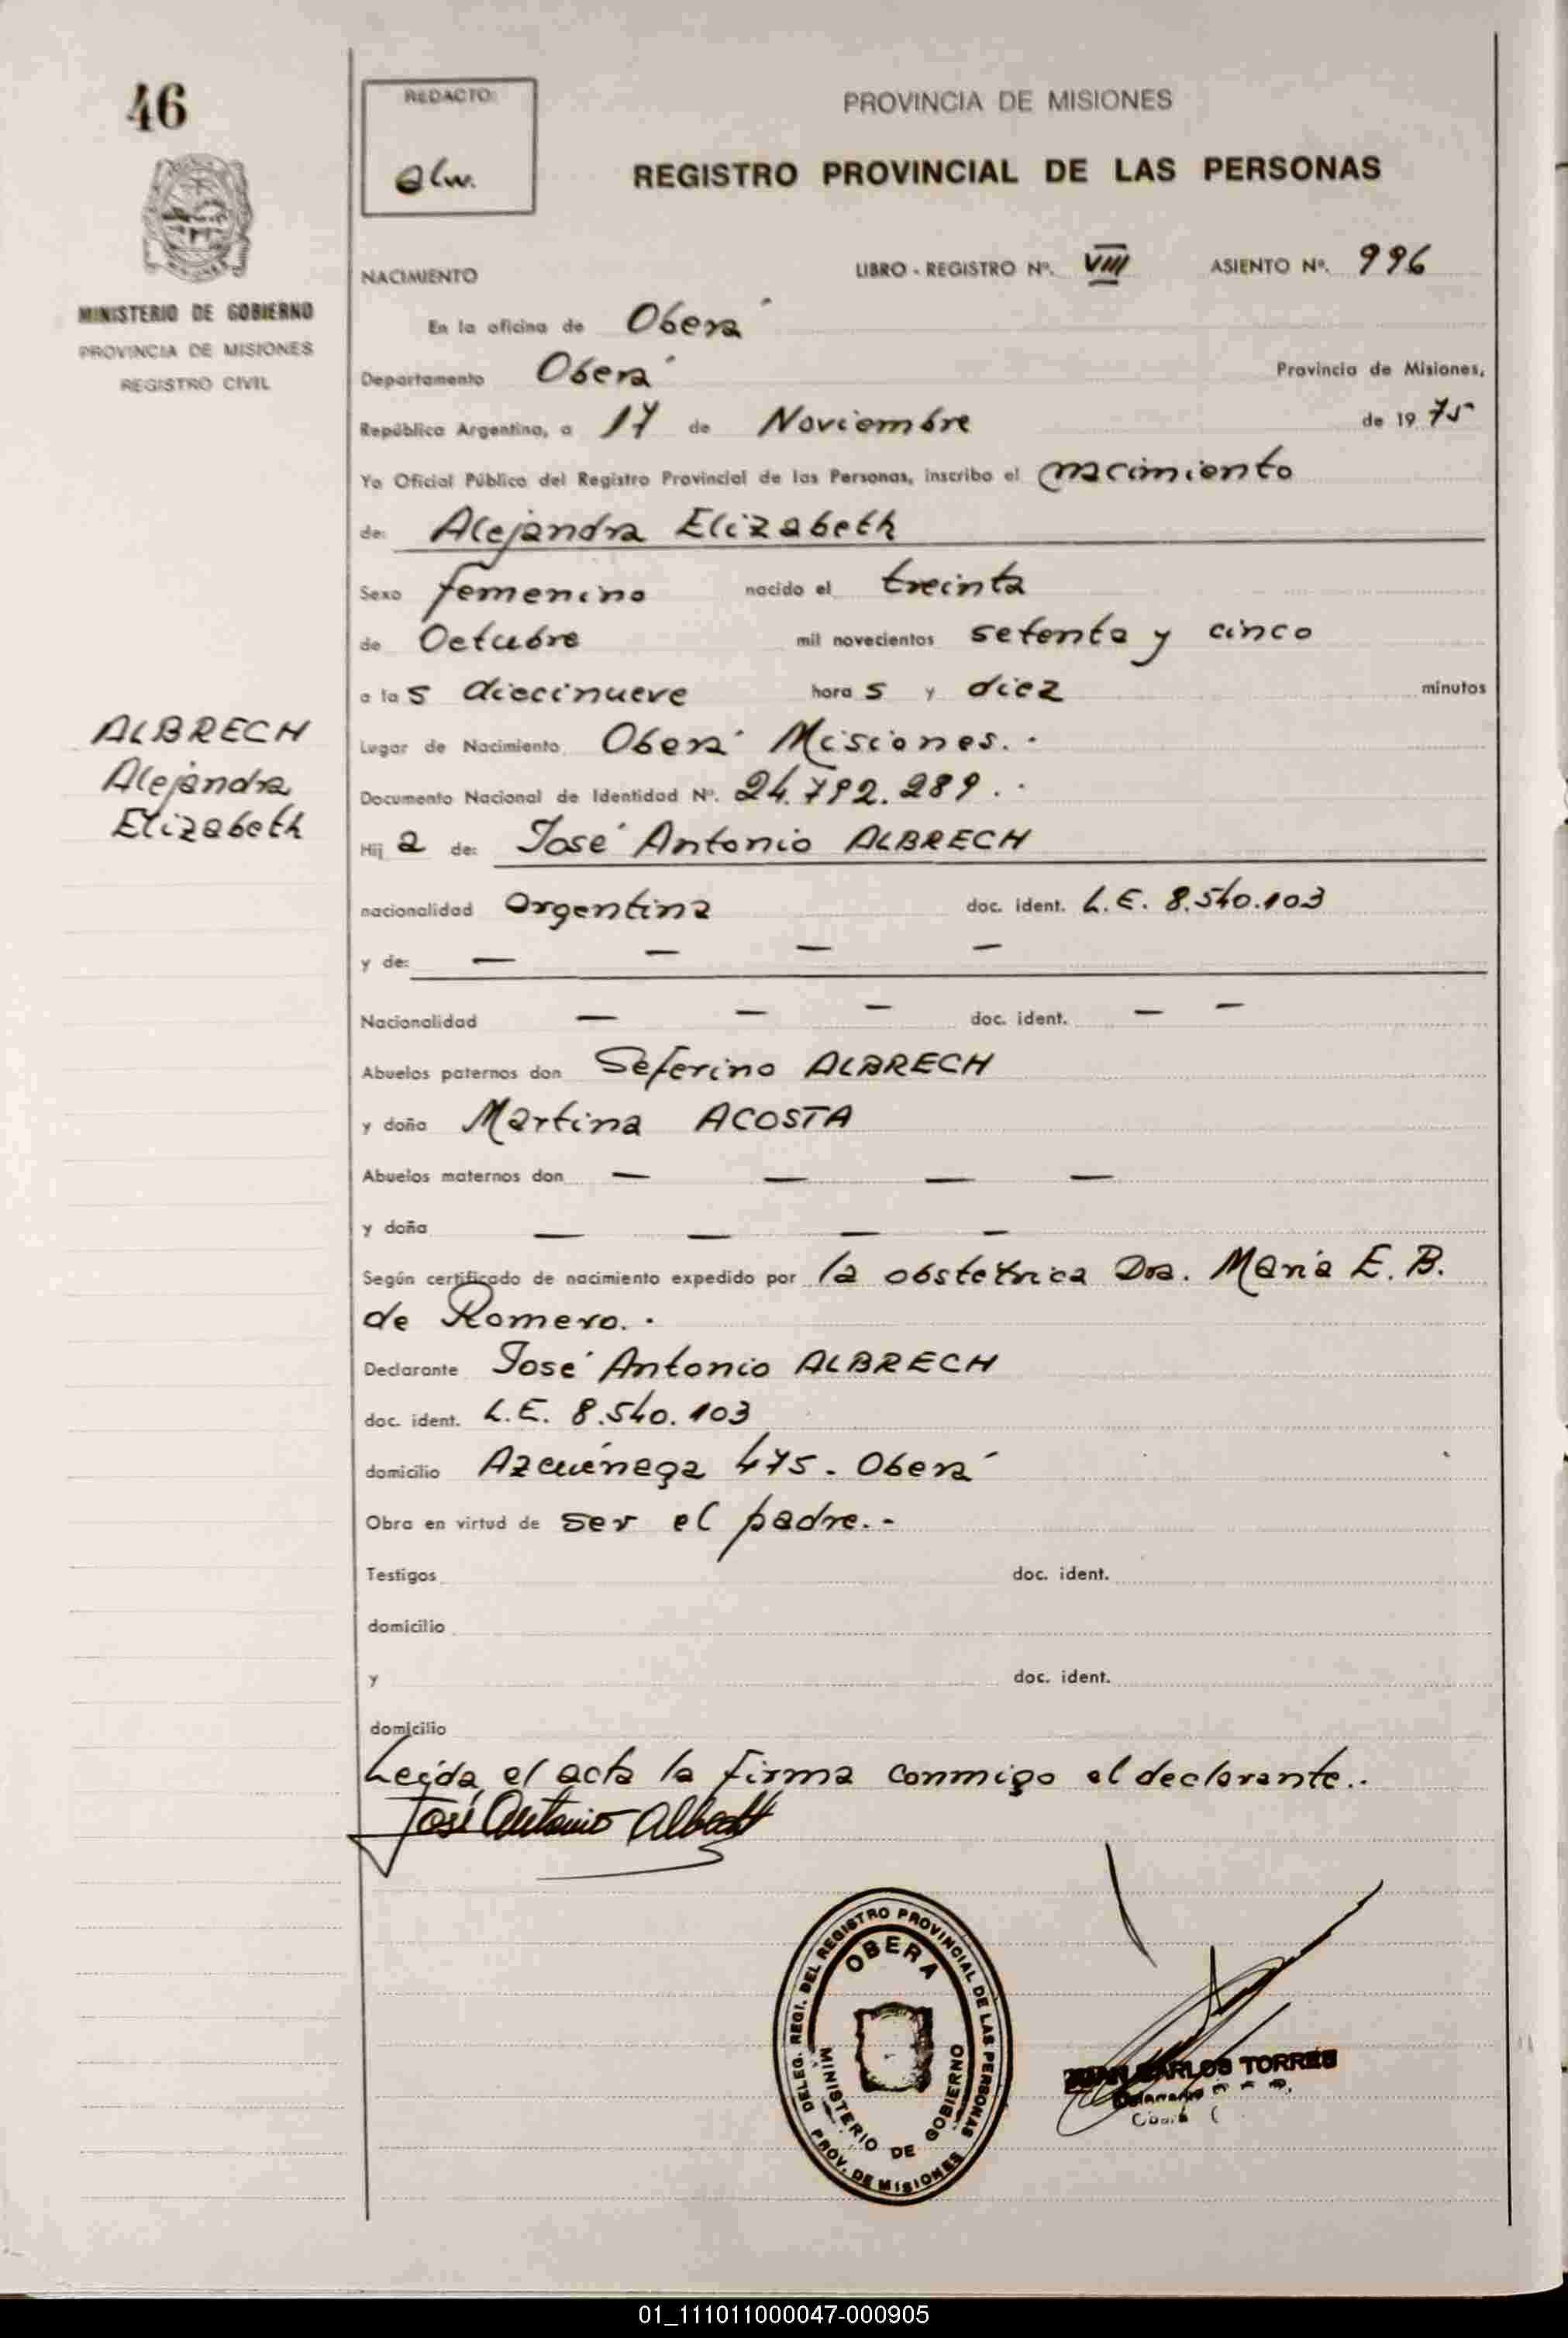 46
REDACTO:
alw.
PROVINCIA DE MISIONES
REGISTRO PROVINCIAL DE LAS PERSONAS
MINISTERIO DE GOBIERNO
PROVINCIA DE MISIONES
REGISTRO CIVIL
NACIMIENTO LIBRO - REGISTRO Nº. VIII ASIENTO Nº. 996
En la oficina de Oberá
Departamento Oberá Provincia de Misiones,
República Argentina, a 17 de Noviembre de 1975
Yo Oficial Público del Registro Provincial de las Personas, inscribo el nacimiento
de: Alejandra Elizabeth
Sexo femenino nacido el treinta
de Octubre mil novecientos setenta y cinco
a las diecinueve horas y diez minutos
ALBRECH
Alejandra
Elizabeth
Lugar de Nacimiento Oberá Misiones. -
Documento Nacional de Identidad Nº. 24.792.289. -
Hija de: José Antonio ALBRECH
nacionalidad argentina doc. ident. L.E. 8.540.103
y de: — — — —
Nacionalidad — — — doc. ident. — —
Abuelos paternos don Seferino ALBRECH
y doña Martina ACOSTA
Abuelos maternos don — — — —
y doña — — — —
Según certificado de nacimiento expedido por la obstetrica Dra. María E. B.
de Romero. -
Declarante José Antonio ALBRECH
doc. ident. L.E. 8.540.103
domicilio Azcuénaga 475. Oberá
Obra en virtud de ser el padre. -
Testigos doc. ident.
domicilio
y doc. ident.
domicilio
Leída el acta la firma conmigo el declarante..
José Antonio Albrecht
DELEG. REGI. DEL REGISTRO PROVINCIAL DE LAS PERSONAS
OBERA
MINISTERIO DE GOBIERNO
PROV. DE MISIONES
JUAN CARLOS TORRES
01_111011000047-000905